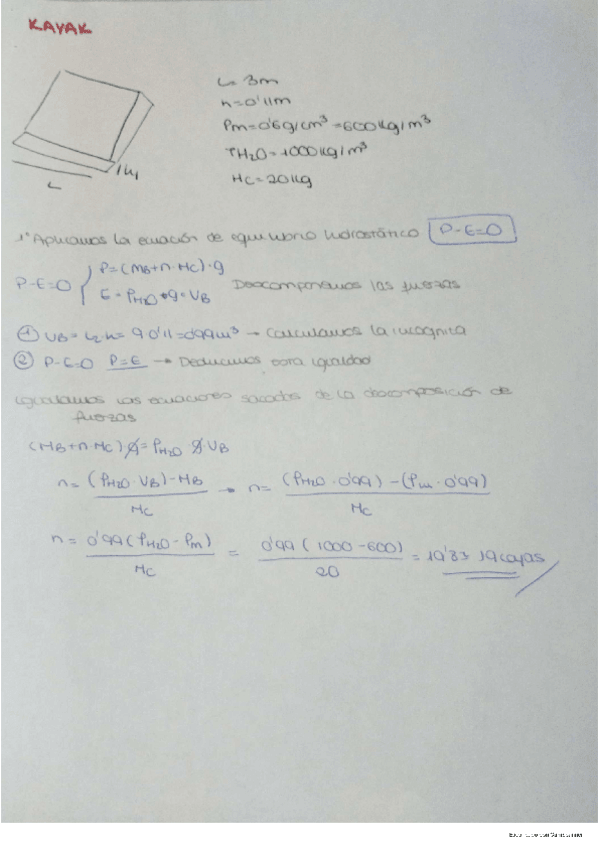 KAYAK
L= 3m
h=0'11m
ρm=0'6g/cm³=600kg/m³
ρH2O=1000kg/m³
Mc=20kg
L
h
1° Aplicamos la ecuación de equilibrio hidrostático P-E=0
P-E=0 { P=(MB+n·Mc)·g
E=ρH2O·g·VB Descomponemos las fuerzas
① VB=L²·h=9·0'11=0'99m³ → Calculamos la incognita
② P-E=0 P=E → Deducimos esta igualdad
Igualamos las ecuaciones sacadas de la descomposición de
fuerzas
(MB+n·Mc)g=ρH2O g VB
n= (ρH2O·VB)-MB / Mc → n= (ρH2O·0'99)-(ρm·0'99) / Mc
n= 0'99(ρH2O-ρm) / Mc = 0'99(1000-600) / 20 = 19'83 19 cajas